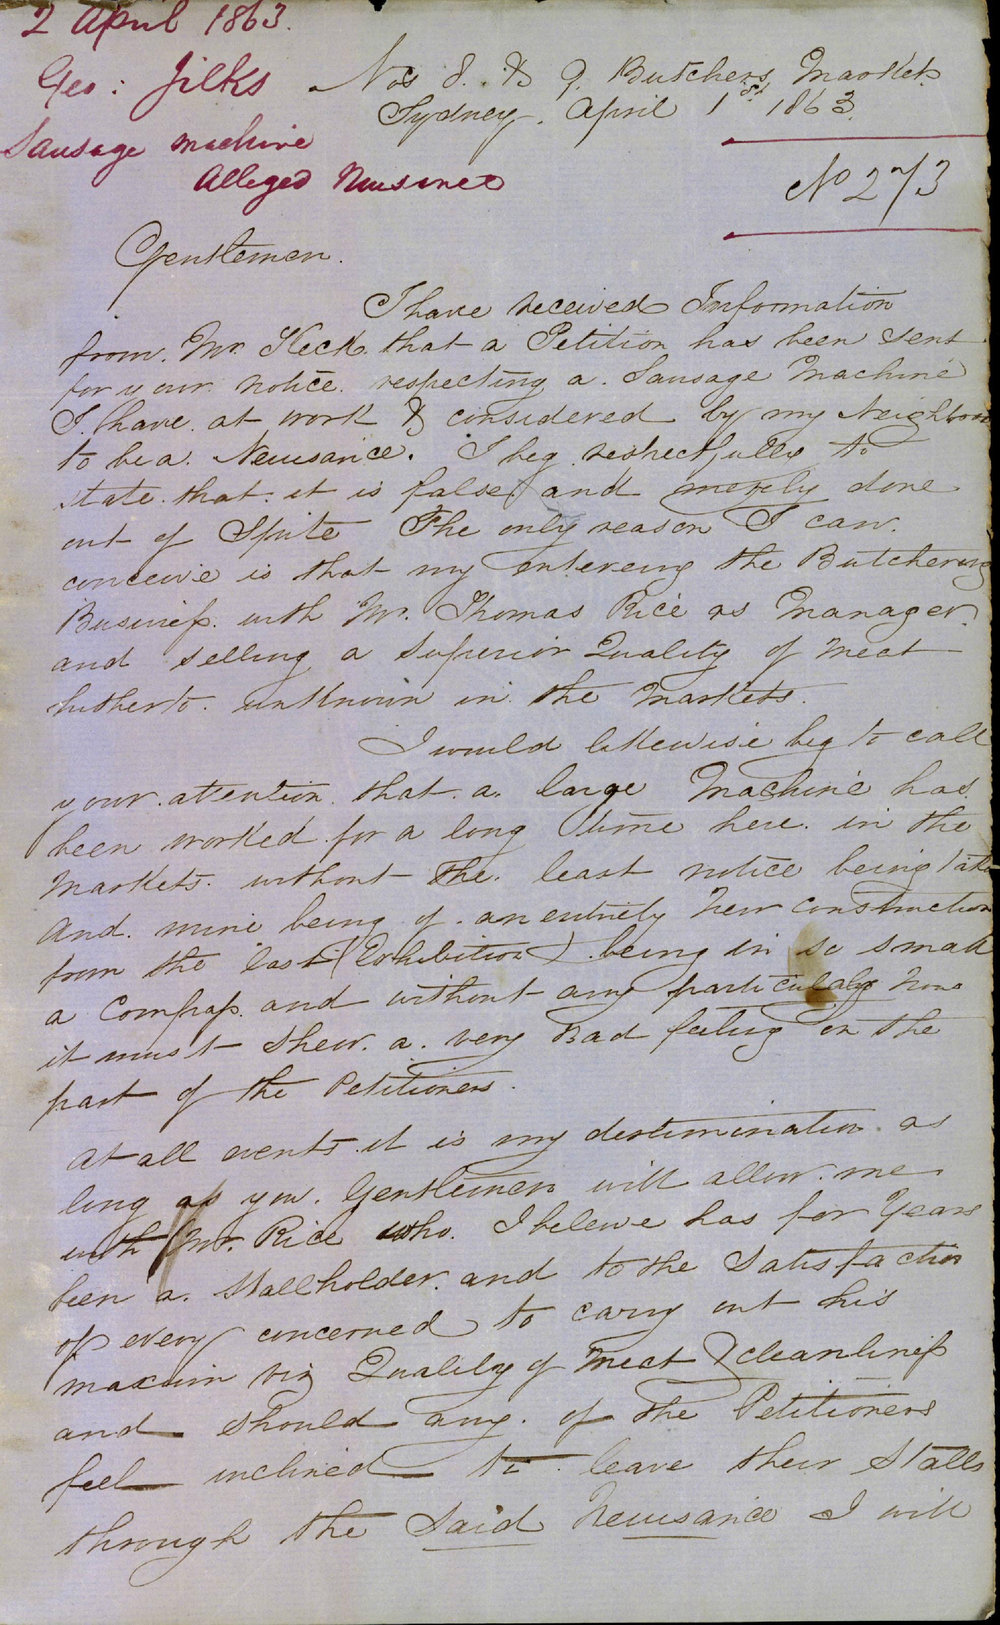 2 April 1863.
Geo: Jilks
Sausage machine
Alleged Nuisance
Nos 8. & 9. Butchers Markets
Sydney. April 1st 1863.
No 273
Gentlemen.
I have received Information
from. Mr. Keck. that a Petition has been sent
for your. notice. respecting a. Sausage Machine
I. have. at work & considered by my Neighbours
to be a. Newsance. I beg respectfully to
state. that. it is false and merely done
out of Spite The only reason I can.
conceive is that my entereing the Butchering
Business. with Mr. Thomas Rice as Manager.
and selling a superior Quality of Meat
hitherto. unknown in the Markets.
I would likewise beg to call
your. attention. that. a. large Machine has
been worked for a long time here. in the
Markets. without the. least notice being take
And. mine being of. an entirely New construction
from the last (Exhibition) being in so small
a Compass. and without any particulaly
it must shew. a. very Bad feeling on the
part of the Petitioners.
At all events. it is my determination. as
long as you. Gentlemen will allow. me
with Mr. Rice who. I beleive has for Years
been a. Stallholder. and to the Satisfaction
of every concerned to carry out his
maxim viz Quality of Meat & cleanliness
and should any. of the Petitioners
feel inclined to leave their Stalls
through the Said Newsance I will